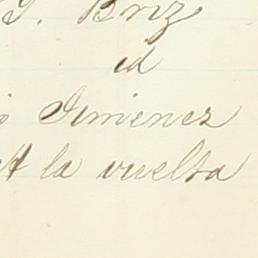 J. Briz
id
Jimenez
A la vuelta